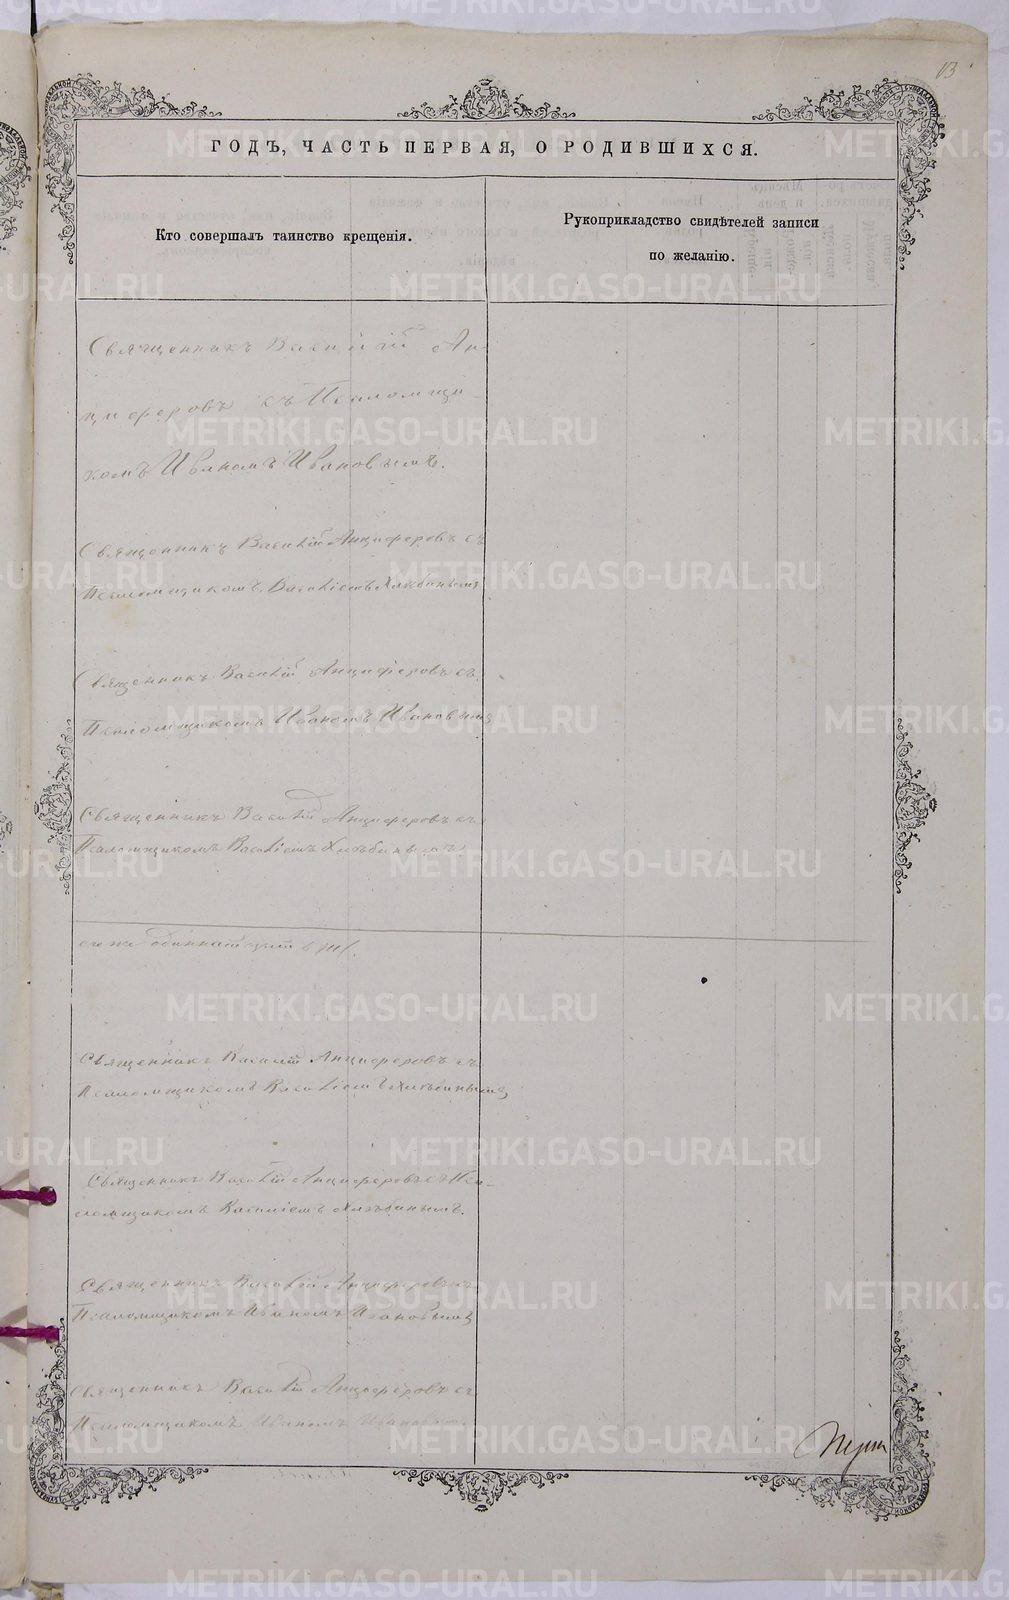 13
ГОДЪ, ЧАСТЬ ПЕРВАЯ, О РОДИВШИХСЯ.
Кто совершалъ таинство крещенія.
Рукоприкладство свидѣтелей записи
по желанію.
Священникъ Василій Ан-
циферовъ съ Псаломщи-
комъ Иваномъ Ивановымъ.
Священникъ Василій Анциферовъ съ
Псаломщикомъ Василіемъ Хлѣбинымъ
Священникъ Василій Анциферовъ съ
Псаломщикомъ Иваномъ Ивановымъ
Священникъ Василій Анциферовъ съ
Псаломщикомъ Василіемъ Хлѣбинымъ
Священникъ Василій Анциферовъ съ
Псаломщикомъ Василіемъ Хлѣбинымъ
Священникъ Василій Анциферовъ съ Пса-
ломщикомъ Василіемъ Хлѣбинымъ.
Священникъ Василій Анциферовъ съ
Псаломщикомъ Иваномъ Ивановымъ
Священникъ Василій Анциферовъ съ
Псаломщикомъ Иваномъ Ивановымъ
METRIKI.GASO-URAL.RU